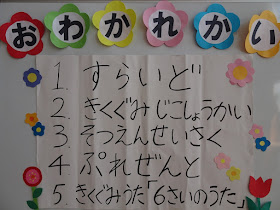 おわかれかい
1. すらいど
2. きくぐみじこしょうかい
3. そつえんせいさく
4 ぷれぜんと
5 きくぐみうた「6さいのうた」